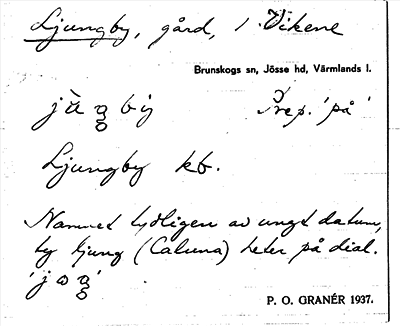 Ljungby, gård, 1 Vikene
Brunskogs sn, Jösse hd, Värmlands l.
Prep. 'på'
Ljungby kb.
Namnet tydligen av ungt datum,
ty ljung (Caluna) heter på dial.
P. O. GRANÉR 1937.